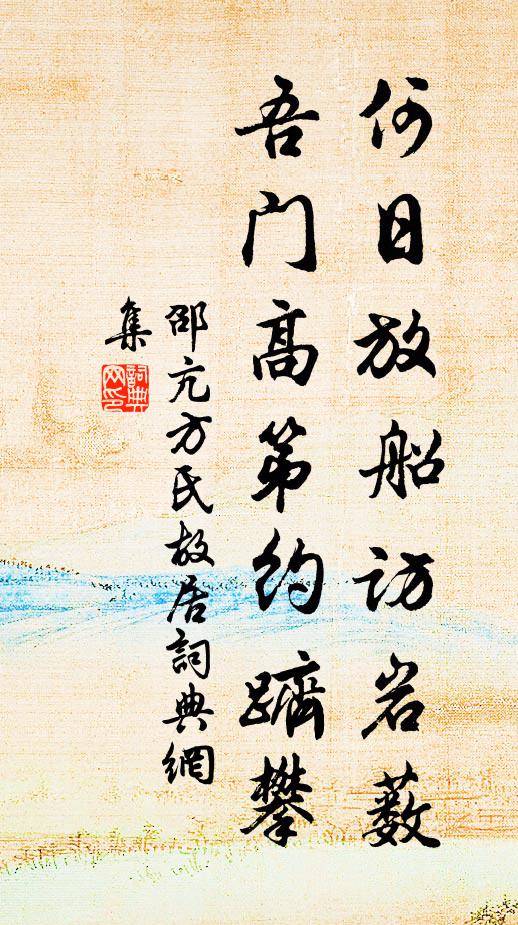 何日放船访岩薮
吾门高第约跻攀
邵亢方氏故居詞典網
集
詞典
网印